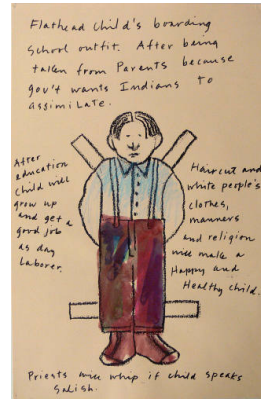 Flathead child's boarding
school outfit. After being
taken from Parents because
gov't wants Indians to
assimilate.
After
education
child will
grow up
and get a
good job
as day
Laborer.
Haircut and
white people's
clothes,
manners
and religion
will make a
Happy and
Healthy child.
Priests will whip if child speaks
Salish.